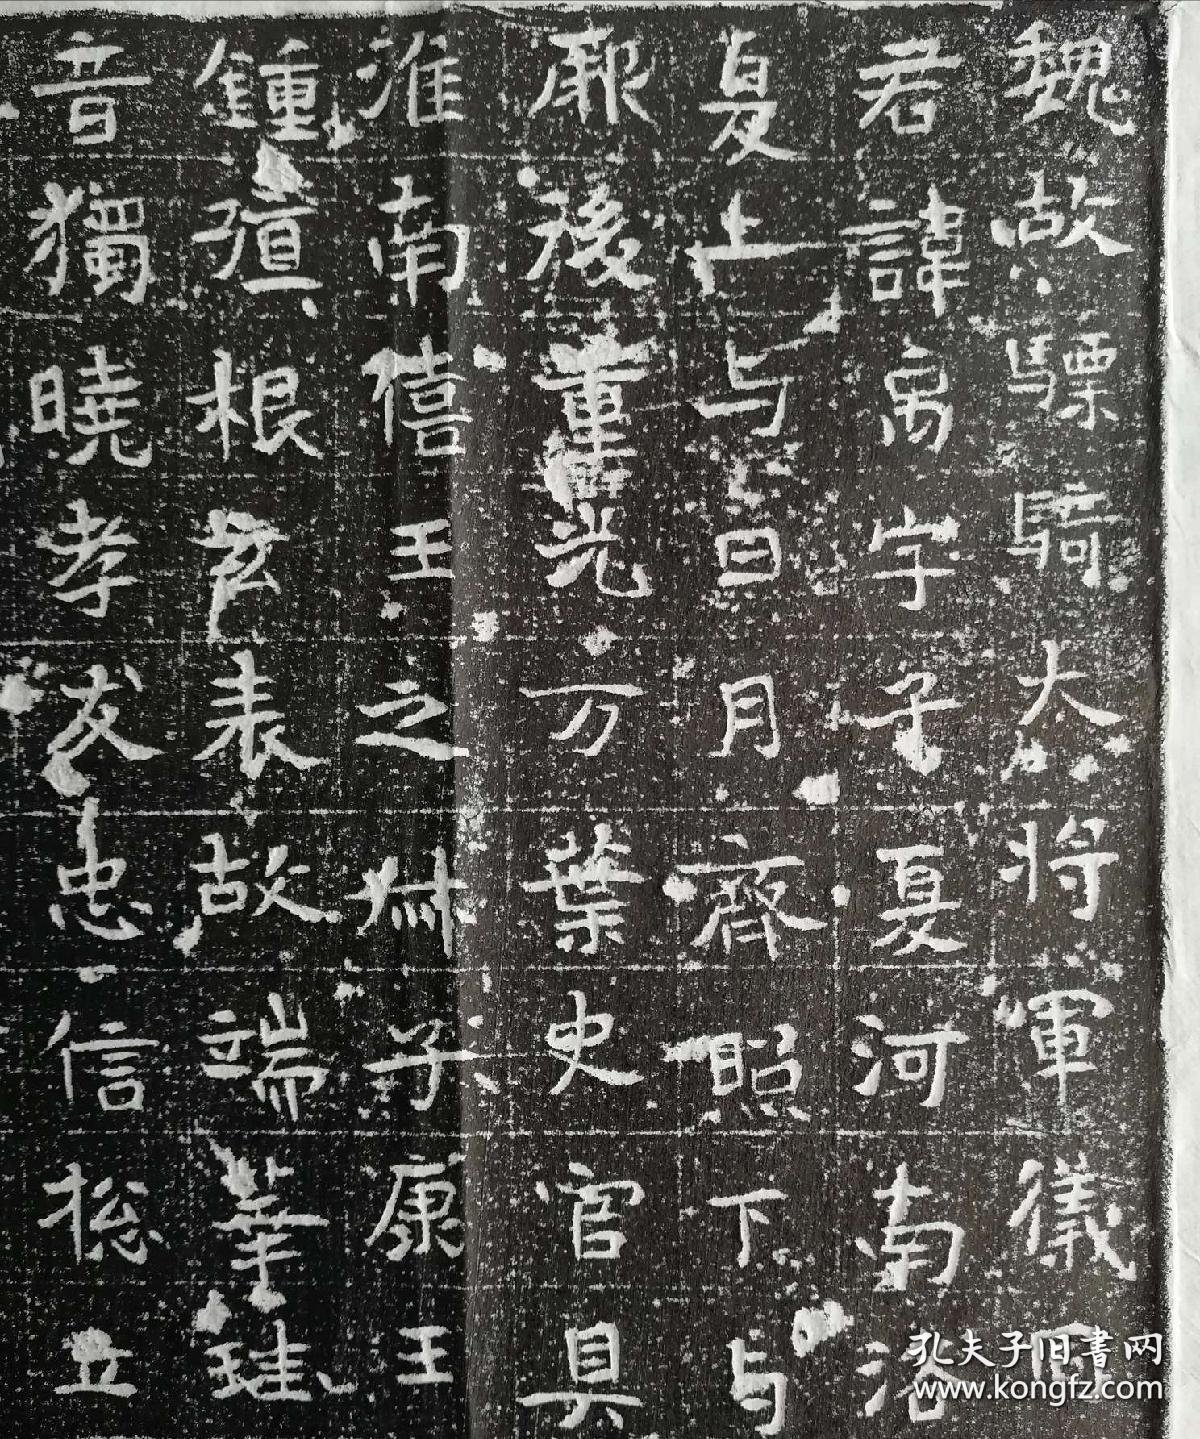 魏故骠騎大將軍儀同
君諱禼字子夏河南洛
夏上与日月齊照下与
厥後重光万葉史官具
淮南僖王之牀子康王
鍾殖根表故端華珪
音獨曉孝友忠信揔
孔夫子旧书网
www.kongfz.com